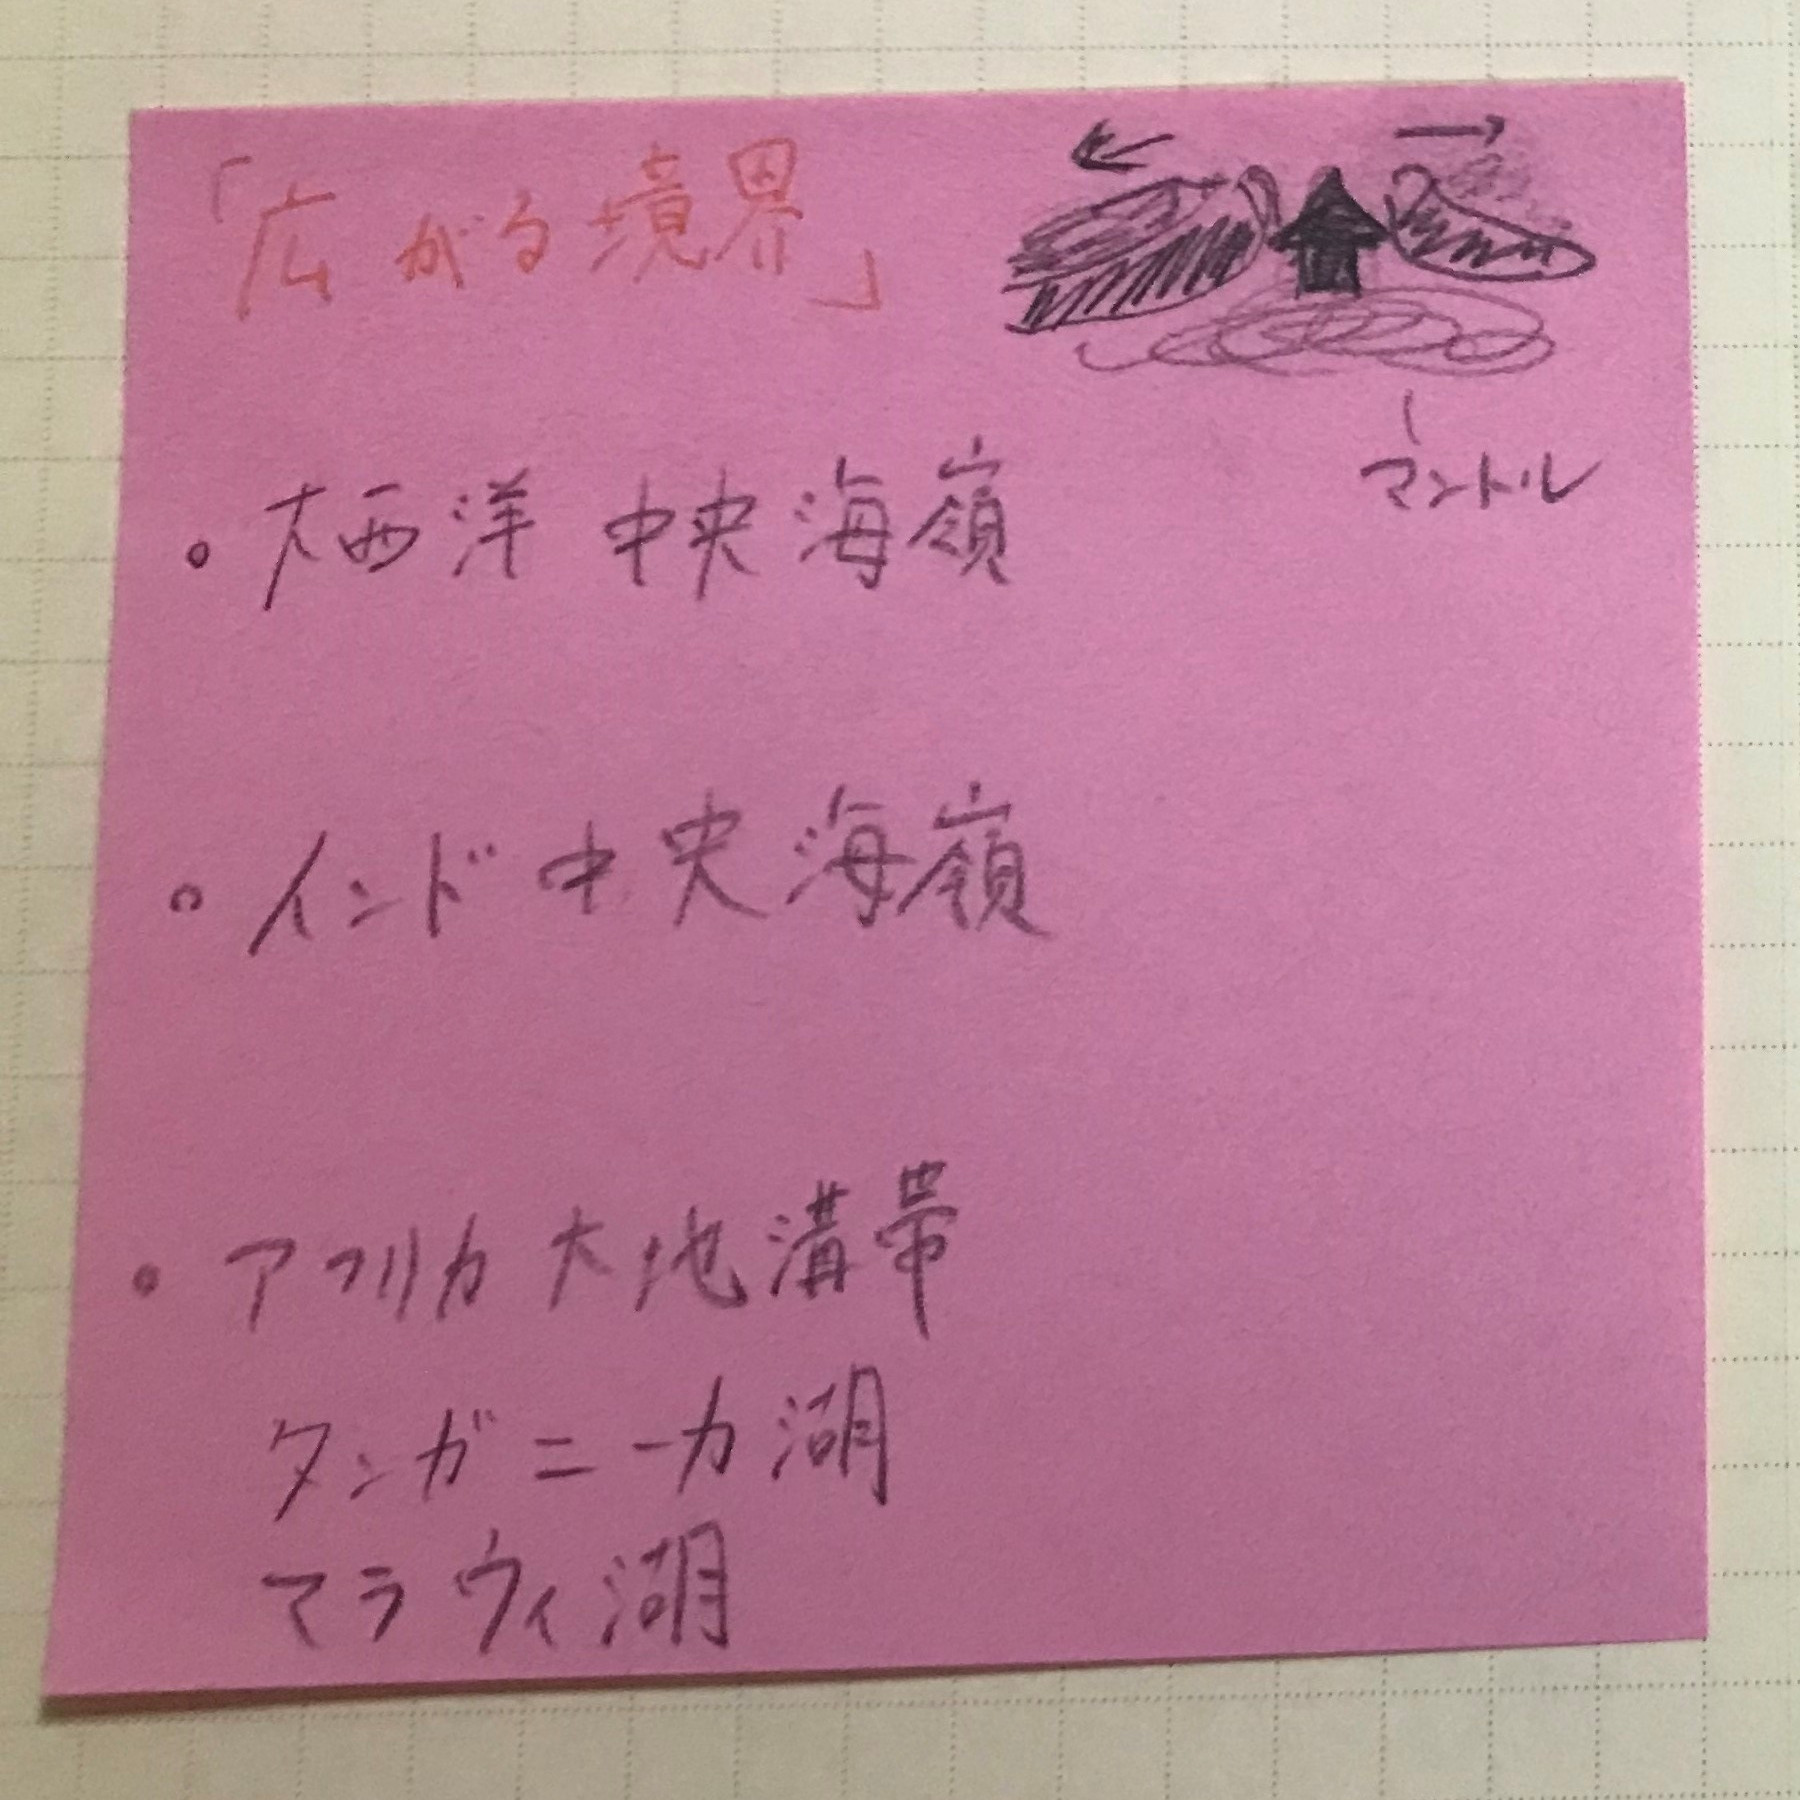 「広がる境界」
マントル
• 大西洋中央海嶺
• インド中央海嶺
• アフリカ大地溝帯
タンガニーカ湖
マラウィ湖